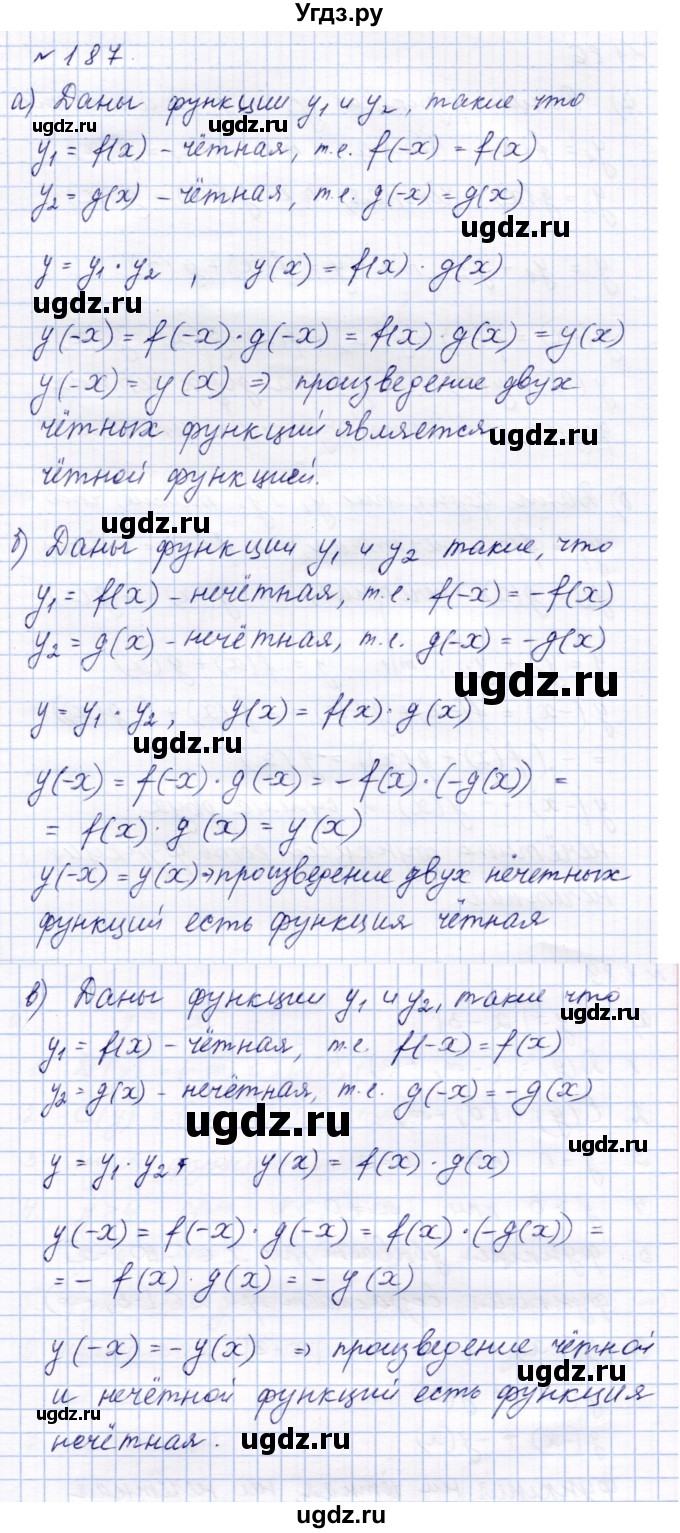 Угдз.ру
№187.
а) Даны функции y₁ и y₂, такие что
ugdz.ru ugdz.ru
y₁ = f(x) – чётная, т.е. f(-x) = f(x)
y₂ = g(x) – чётная, т.е. g(-x) = g(x)
ugdz.ru
y = y₁ · y₂ , y(x) = f(x) · g(x)
ugdz.ru
y(-x) = f(-x) · g(-x) = f(x) · g(x) = y(x)
y(-x) = y(x) ⇒ произведение двух
чётных функций является
ugdz.ru
чётной функцией.
ugdz.ru
б) Даны функции y₁ и y₂ такие, что
y₁ = f(x) – нечётная, т.е. f(-x) = -f(x)
y₂ = g(x) – нечётная, т.е. g(-x) = -g(x)
ugdz.ru
y = y₁ · y₂, y(x) = f(x) · g(x)
ugdz.ru
y(-x) = f(-x) · g(-x) = -f(x) · (-g(x)) =
= f(x) · g(x) = y(x)
y(-x) = y(x) ⇒ произведение двух нечетных
функций есть функция чётная
в) Даны функции y₁ и y₂, такие что
ugdz.ru
y₁ = f(x) – чётная, т.е. f(-x) = f(x)
y₂ = g(x) – нечётная, т.е. g(-x) = -g(x)
ugdz.ru
ugdz.ru
y = y₁ · y₂, y(x) = f(x) · g(x)
y(-x) = f(-x) · g(-x) = f(x) · (-g(x)) =
= - f(x) · g(x) = - y(x)
y(-x) = - y(x) ⇒ произведение чётной
ugdz.ru
и нечётной функций есть функция
ugdz.ru
нечётная.
ugdz.ru
ugdz.ru